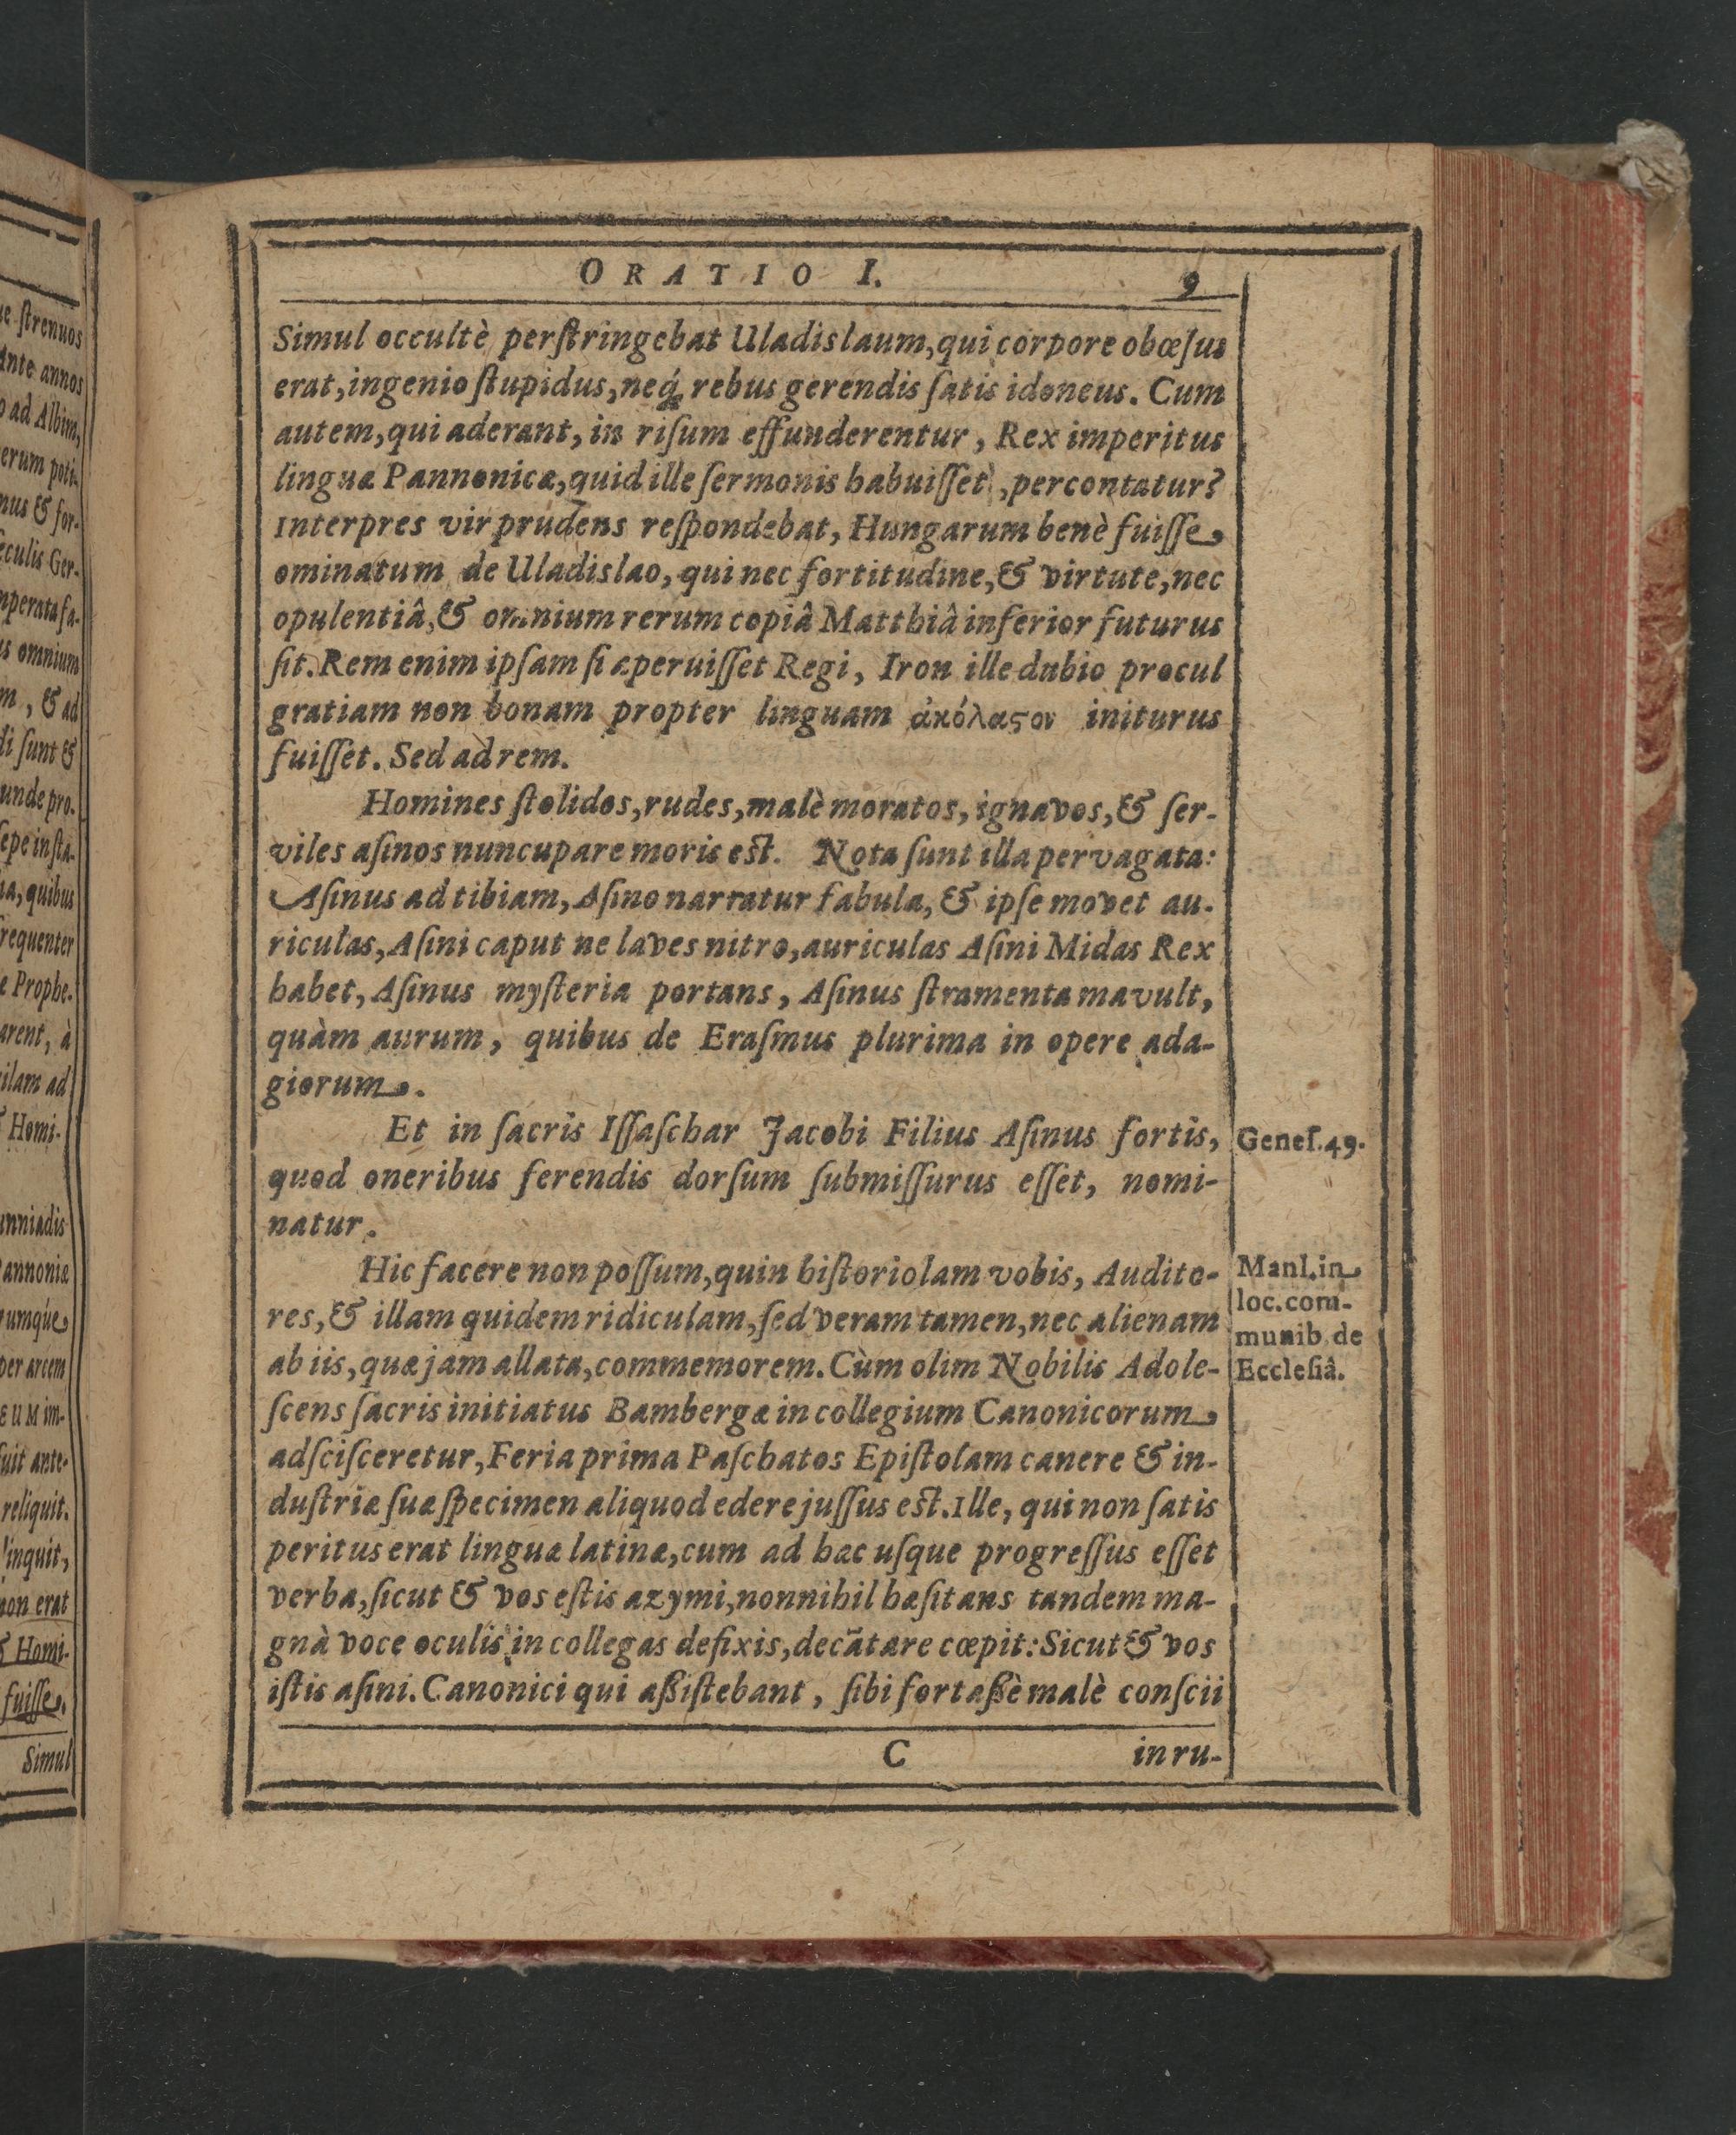 ORATIO I. 9
Simul occultè perſtringebat Uladislaum, qui corpore obœſus
erat, ingenio ſtupidus, neq́; rebus gerendis ſatis idoneus. Cum
autem, qui aderant, in riſum effunderentur, Rex imperitus
linguæ Pannonicæ, quid ille ſermonis habuiſſet, percontatur?
Interpres vir prudens reſpondebat, Hungarum benè fuiſſe
ominatum de Uladislao, qui nec fortitudine, & virtute, nec
opulentiâ, & omnium rerum copiâ Matthiâ inferior futurus
ſit. Rem enim ipſam ſi aperuiſſet Regi, Iron ille dubio procul
gratiam non bonam propter linguam ἀκόλαςον initurus
fuiſſet. Sed ad rem.
Homines ſtolidos, rudes, malè moratos, ignavos, & ſer-
viles aſinos nuncupare moris est. Nota ſunt illa pervagata:
Aſinus ad tibiam, Aſino narratur fabula, & ipſe movet au-
riculas, Aſini caput ne laves nitro, auriculas Aſini Midas Rex
habet, Aſinus myſteria portans, Aſinus ſtramenta mavult,
quàm aurum, quibus de Eraſmus plurima in opere ada-
giorum.
Et in ſacris Iſſaſchar Jacobi Filius Aſinus fortis,
Geneſ. 49.
quod oneribus ferendis dorſum ſubmiſſurus eſſet, nomi-
natur.
Hic facere non poſſum, quin hiſtoriolam vobis, Audito-
Manl. in
res, & illam quidem ridiculam, ſed veram tamen, nec alienam
loc. com-
munib. de
ab iis, quæ jam allata, commemorem. Cùm olim Nobilis Adole-
Eccleſiâ.
ſcens ſacris initiatus Bambergæ in collegium Canonicorum
adſciſceretur, Feria prima Paſchatos Epiſtolam canere & in-
duſtriæ ſuæ ſpecimen aliquod edere juſſus est. Ille, qui non ſatis
peritus erat linguæ latinæ, cum ad hæc uſque progreſſus eſſet
verba, ſicut & vos eſtis azymi, nonnihil hæſitans tandem ma-
gnà voce oculis in collegas defixis, decãtare cœpit: Sicut & vos
iſtis aſini. Canonici qui aßiſtebant, ſibi fortaßè malè conſcii
C inru-